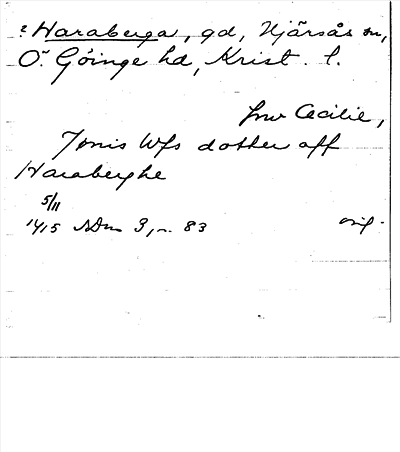 ? Haraberga, gd, Hjärsås sn,
Ö. Göinge hd, Krist. l.
frw Cecilie,
Jonis Wfs dotther aff
Haraberghe
5/11
1415 SDns 3, n. 83 orig.